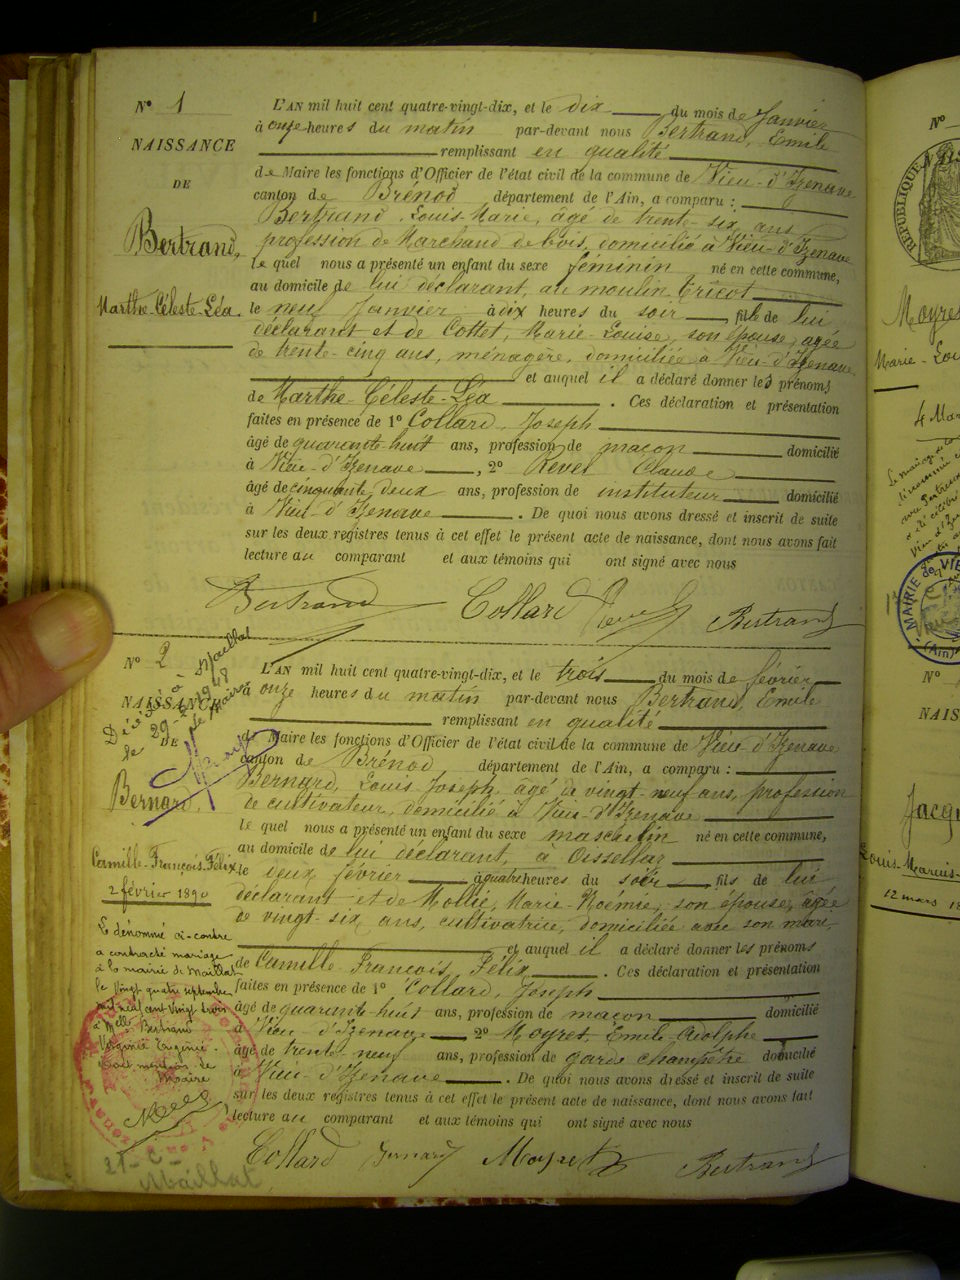 N° 1
NAISSANCE
DE
Bertrand,
Marthe-Céleste-Léa.
L'AN mil huit cent quatre-vingt-dix, et le dix du mois de Janvier
à onze heures du matin par-devant nous Bertrand, Emile
remplissant en qualité
de Maire les fonctions d'Officier de l'état civil de la commune de Vieu-d'Izenave
canton de Brénod département de l'Ain, a comparu :
Bertrand, Louis-Marie, âgé de trente-six ans
profession de Marchand de bois, domicilié à Vieu-d'Izenave
le quel nous a présenté un enfant du sexe féminin né en cette commune,
au domicile de lui déclarant, au moulin Tricot
le neuf Janvier à dix heures du soir, fille de lui
déclarant et de Cottet, Marie-Louise, son épouse, agée
de trente-cinq ans, ménagère, domiciliée à Vieu-d'Izenave
et auquel il a déclaré donner les prénoms
de Marthe-Céleste-Léa. Ces déclaration et présentation
faites en présence de 1° Collard, Joseph
âgé de quarante-huit ans, profession de maçon domicilié
à Vieu-d'Izenave, 2° Revel Claude
âgé de cinquante deux ans, profession de instituteur domicilié
à Vieu-d'Izenave. De quoi nous avons dressé et inscrit de suite
sur les deux registres tenus à cet effet le présent acte de naissance, dont nous avons fait
lecture au comparant et aux témoins qui ont signé avec nous
Bertrand Collard Revel Bertrand
N° 2
NAISSANCE
DE
Décédé à Maillat
le 29-2-1948
le Maire
Bernard,
Camille-François-Félix
2 février 1890
Le dénommé ci-contre
a contracté mariage
à la mairie de Maillat
le vingt quatre septembre
mil neuf cent vingt trois
à Melle Bertrand
Virginie Eugénie.
Dont mention le
Maire
Maillat
L'AN mil huit cent quatre-vingt-dix, et le trois du mois de février
à onze heures du matin par-devant nous Bertrand, Emile
remplissant en qualité
de Maire les fonctions d'Officier de l'état civil de la commune de Vieu-d'Izenave
canton de Brénod département de l'Ain, a comparu :
Bernard, Louis-Joseph, âgé de vingt-neuf ans, profession
de cultivateur, domicilié à Vieu-d'Izenave
le quel nous a présenté un enfant du sexe masculin né en cette commune,
au domicile de lui déclarant, à Oissellaz
le deux février à quatre heures du soir, fils de lui
déclarant et de Mollie, Marie-Noémie, son épouse, agée
de vingt-six, ans, cultivatrice, domiciliée avec son mari,
et auquel il a déclaré donner les prénoms
de Camille François Félix. Ces déclaration et présentation
faites en présence de 1° Collard, Joseph
âgé de quarante-huit ans, profession de maçon domicilié
à Vieu-d'Izenave 2° Moyret Emile Adolphe
âgé de trente neuf ans, profession de garde champêtre domicilié
à Vieu-d'Izenave. De quoi nous avons dressé et inscrit de suite
sur les deux registres tenus à cet effet le présent acte de naissance, dont nous avons fait
lecture au comparant et aux témoins qui ont signé avec nous
Collard Bernard Moyret Bertrand
N°
RÉPUBLIQUE
Moyret
Marie-Lou
4 Mar
MAIRIE de VIE
(Ain)
N°
NAIS
Jacqu
Louis-Marius-
12 mars 18